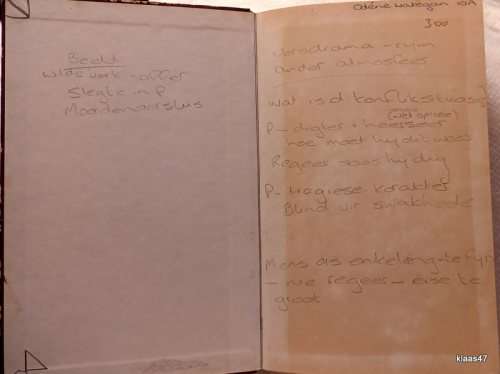 Beeld
wilde vark - offer
Slegte in P
Moordenaarsluis
10A
300
versdrama - rym
ander atmosfeer
Wat is d konfliksituasie
P - digter + heerser
hoe moet hy dit wees
Regeer soos hy dig
P - tragiese karakter
Blind vir swakhede
Mens as enkeleng te fyn
- nie regeer - eise te
groot
klaas47